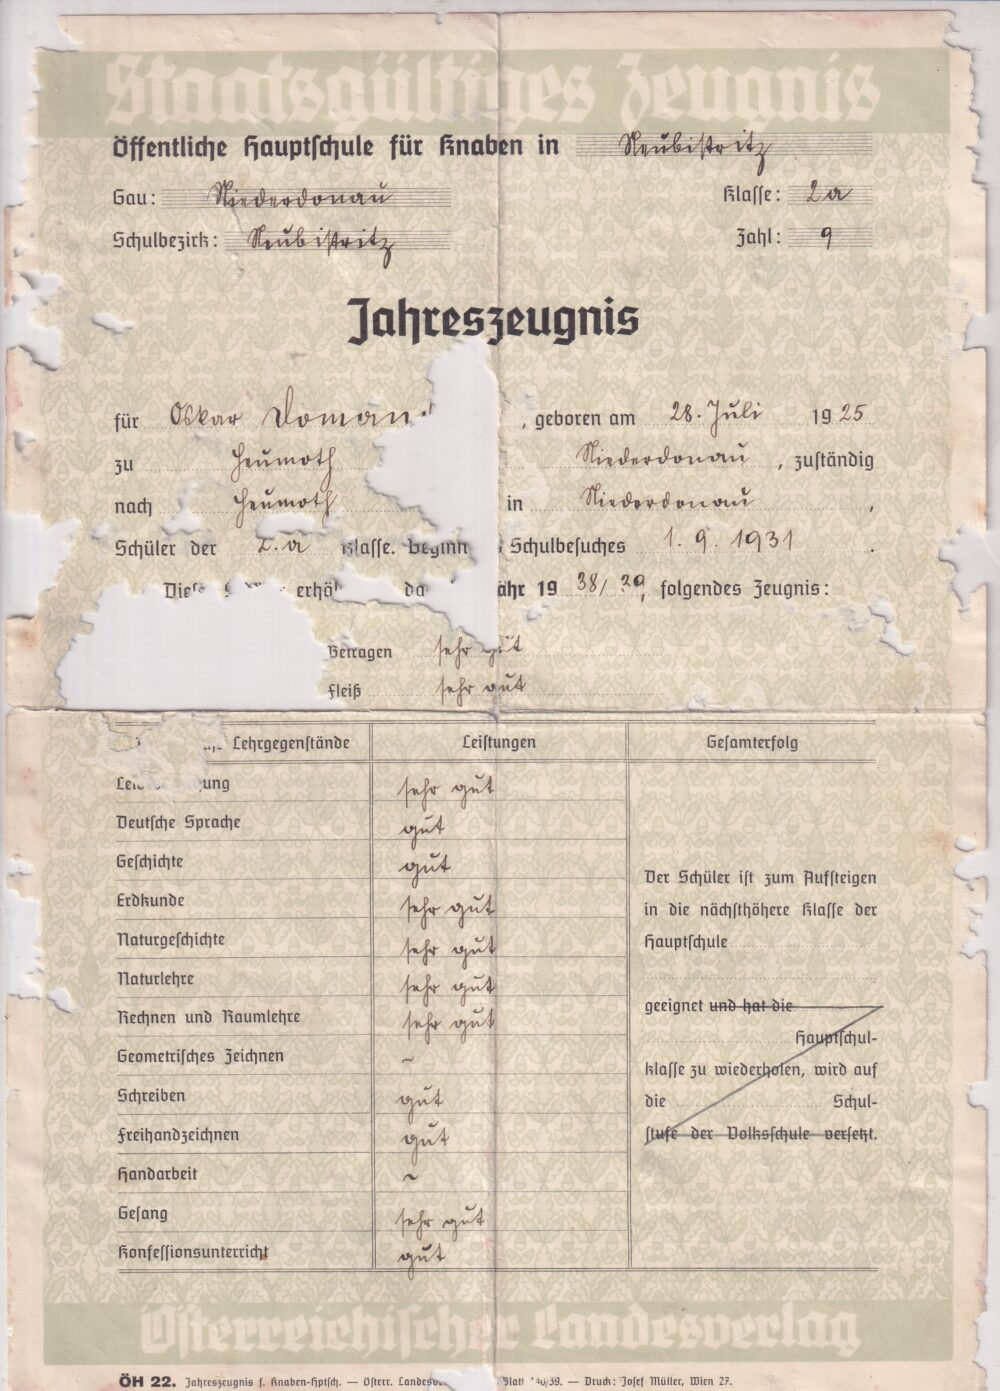 Staatsgültiges Zeugnis
Öffentliche Hauptschule für Knaben in Neubistritz
Gau: Niederdonau Klasse: 2a
Schulbezirk: Neubistritz Zahl: 9
Jahreszeugnis
für Oskar Doman , geboren am 28. Juli 1925
zu Heumoth Niederdonau , zuständig
nach Heumoth in Niederdonau ,
Schüler der 2.a Klasse. Beginn Schulbesuches 1. 9. 1931 .
1938/39, folgendes Zeugnis:
Betragen sehr gut
Fleiß sehr gut
Lehrgegenstände Leistungen Gesamterfolg
sehr gut
Deutsche Sprache gut
Geschichte gut
Erdkunde sehr gut
Naturgeschichte sehr gut
Naturlehre sehr gut
Rechnen und Raumlehre sehr gut
Geometrisches Zeichnen ~
Schreiben gut
Freihandzeichnen gut
Handarbeit ~
Gesang sehr gut
Konfessionsunterricht gut
Der Schüler ist zum Aufsteigen
in die nächsthöhere Klasse der
Hauptschule
geeignet und hat die
Hauptschul-
klasse zu wiederholen, wird auf
die Schul-
stufe der Volksschule versetzt.
Österreichischer Landesverlag
ÖH 22. Jahreszeugnis f. Knaben-Hptsch. — Österr. — Druck: Josef Müller, Wien 27.